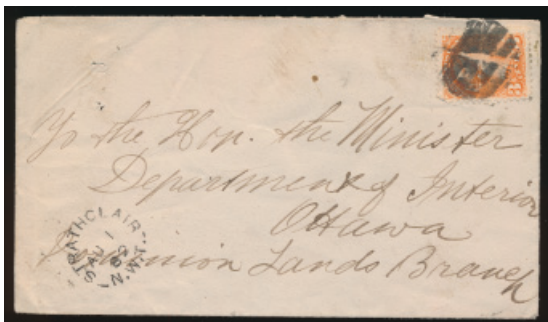 To the Hon. the Minister
Department of Interior
Ottawa
Dominion Lands Branch
STRATHCLAIR
AU 1
N.W.T.
3